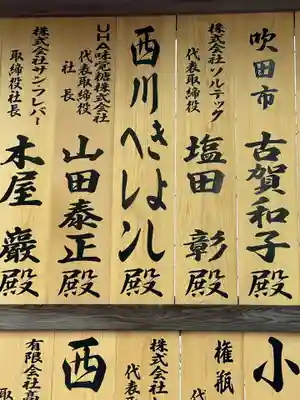 吹田市
古賀和子殿
株式会社ソルテック
代表取締役
塩田 彰殿
西川きよし
ヘレン殿
UHA味覚糖株式会社
代表取締役
社長
山田泰正殿
株式会社サン・フレバー
取締役社長
木屋 巖殿
小
権瓶
代
株式会
代表
西
有限会社高
取